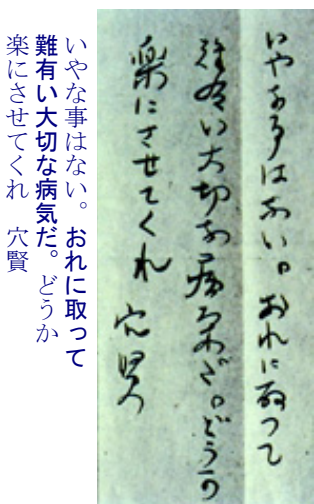 いやな事はない。おれに取つて
難有い大切な病気だ。どうか
楽にさせてくれ 穴賢
いやな事はない。おれに取って
難有い大切な病気だ。どうか
楽にさせてくれ 穴賢